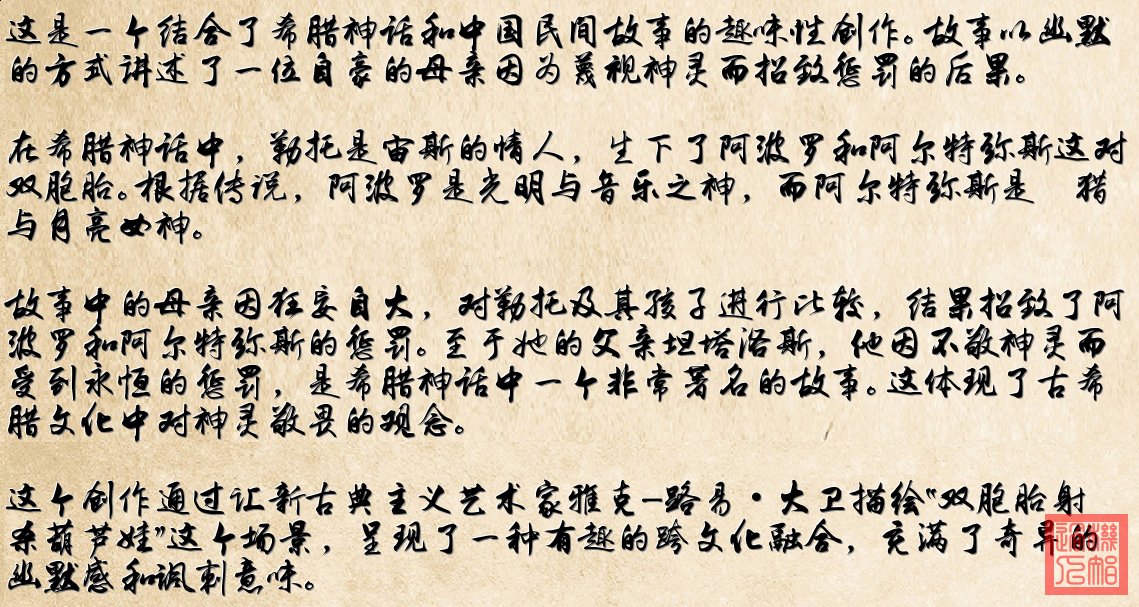 这是一个结合了希腊神话和中国民间故事的趣味性创作。故事以幽默
的方式讲述了一位自豪的母亲因为蔑视神灵而招致惩罚的后果。
在希腊神话中，勒托是宙斯的情人，生下了阿波罗和阿尔特弥斯这对
双胞胎。根据传说，阿波罗是光明与音乐之神，而阿尔特弥斯是 猎
与月亮女神。
故事中的母亲因狂妄自大，对勒托及其孩子进行比较，结果招致了阿
波罗和阿尔特弥斯的惩罚。至于她的父亲坦塔洛斯，他因不敬神灵而
受到永恒的惩罚，是希腊神话中一个非常著名的故事。这体现了古希
腊文化中对神灵敬畏的观念。
这个创作通过让新古典主义艺术家雅克-路易·大卫描绘“双胞胎射
杀葫芦娃”这个场景，呈现了一种有趣的跨文化融合，充满了奇异的
幽默感和讽刺意味。